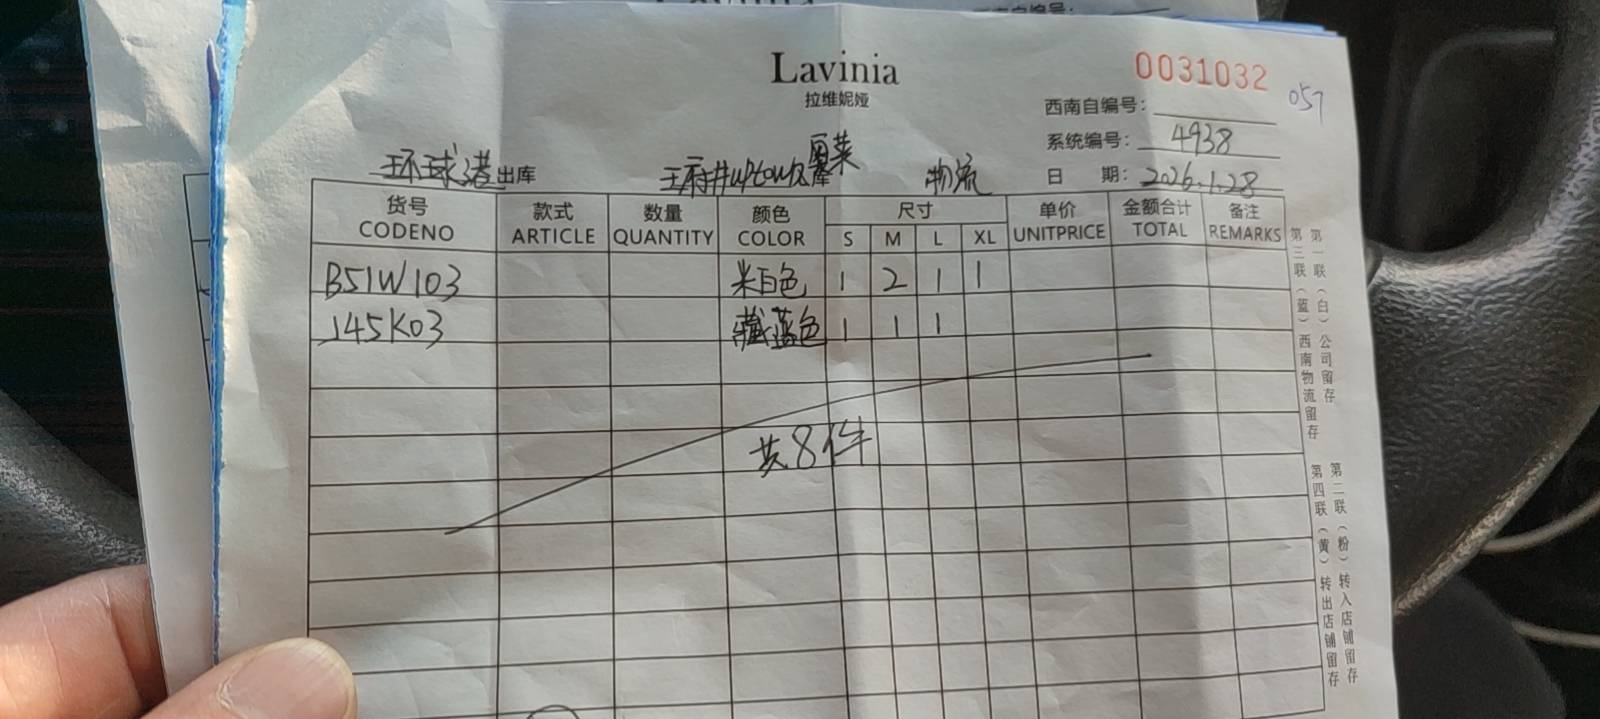 Lavinia
拉维妮娅
0031032
057
西南自编号：
系统编号： 4938
日 期： 2026.1.28
环球港出库 王府井uptown 库 物流
货号 款式 数量 颜色 尺寸 单价 金额合计 备注
CODENO ARTICLE QUANTITY COLOR S M L XL UNITPRICE TOTAL REMARKS
B51W103 米白色 1 2 1 1
J45K03 藏蓝色 1 1 1
共8件
第一联（白）公司留存
第三联（蓝）西南物流留存
第二联（粉）转入店铺留存
第四联（黄）转出店铺留存